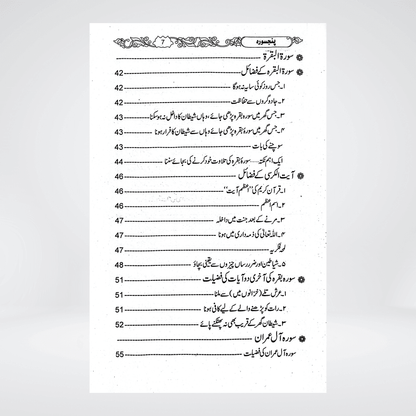 پنجسورہ 7
سورۃ البقرۃ
سورۃ البقرہ کے فضائل 42
۱۔ جس روز کوئی سایہ نہ ہوگا 42
۲۔ جادوگروں سے حفاظت 42
۳۔ جس گھر میں سورہ بقرہ پڑھی جائے، وہاں شیطان کا داخل نہ ہو سکنا 43
۴۔ جس گھر میں سورہ بقرہ پڑھی جائے وہاں سے شیطان کا فرار ہونا 43
سوچنے کی بات 43
ایک اہم نکتہ۔۔۔ سورۃ بقرہ کی تلاوت خود کرنے کی بجائے سننا 44
آیت الکرسی کے فضائل 46
۱۔ قرآن کریم کی "اعظم آیت" 46
۲۔ اسم اعظم 46
۳۔ مرنے کے بعد جنت میں داخلہ 47
۴۔ اللہ تعالیٰ کی ذمہ داری میں ہونا 47
لمحہ فکریہ 47
۵۔ شیاطین اور ضرر رساں چیزوں سے یقینی بچاؤ 48
سورہ بقرہ کی آخری دو آیات کی فضیلت 51
۱۔ عرش تلے (خزانوں میں) سے ملنا 51
۲۔ رات کو پڑھنے والے کے لیے کافی ہونا 51
۳۔ شیطان گھر کے قریب بھی نہ پھٹکنے پائے 52
سورہ آل عمران
سورہ آل عمران کی فضیلت 55